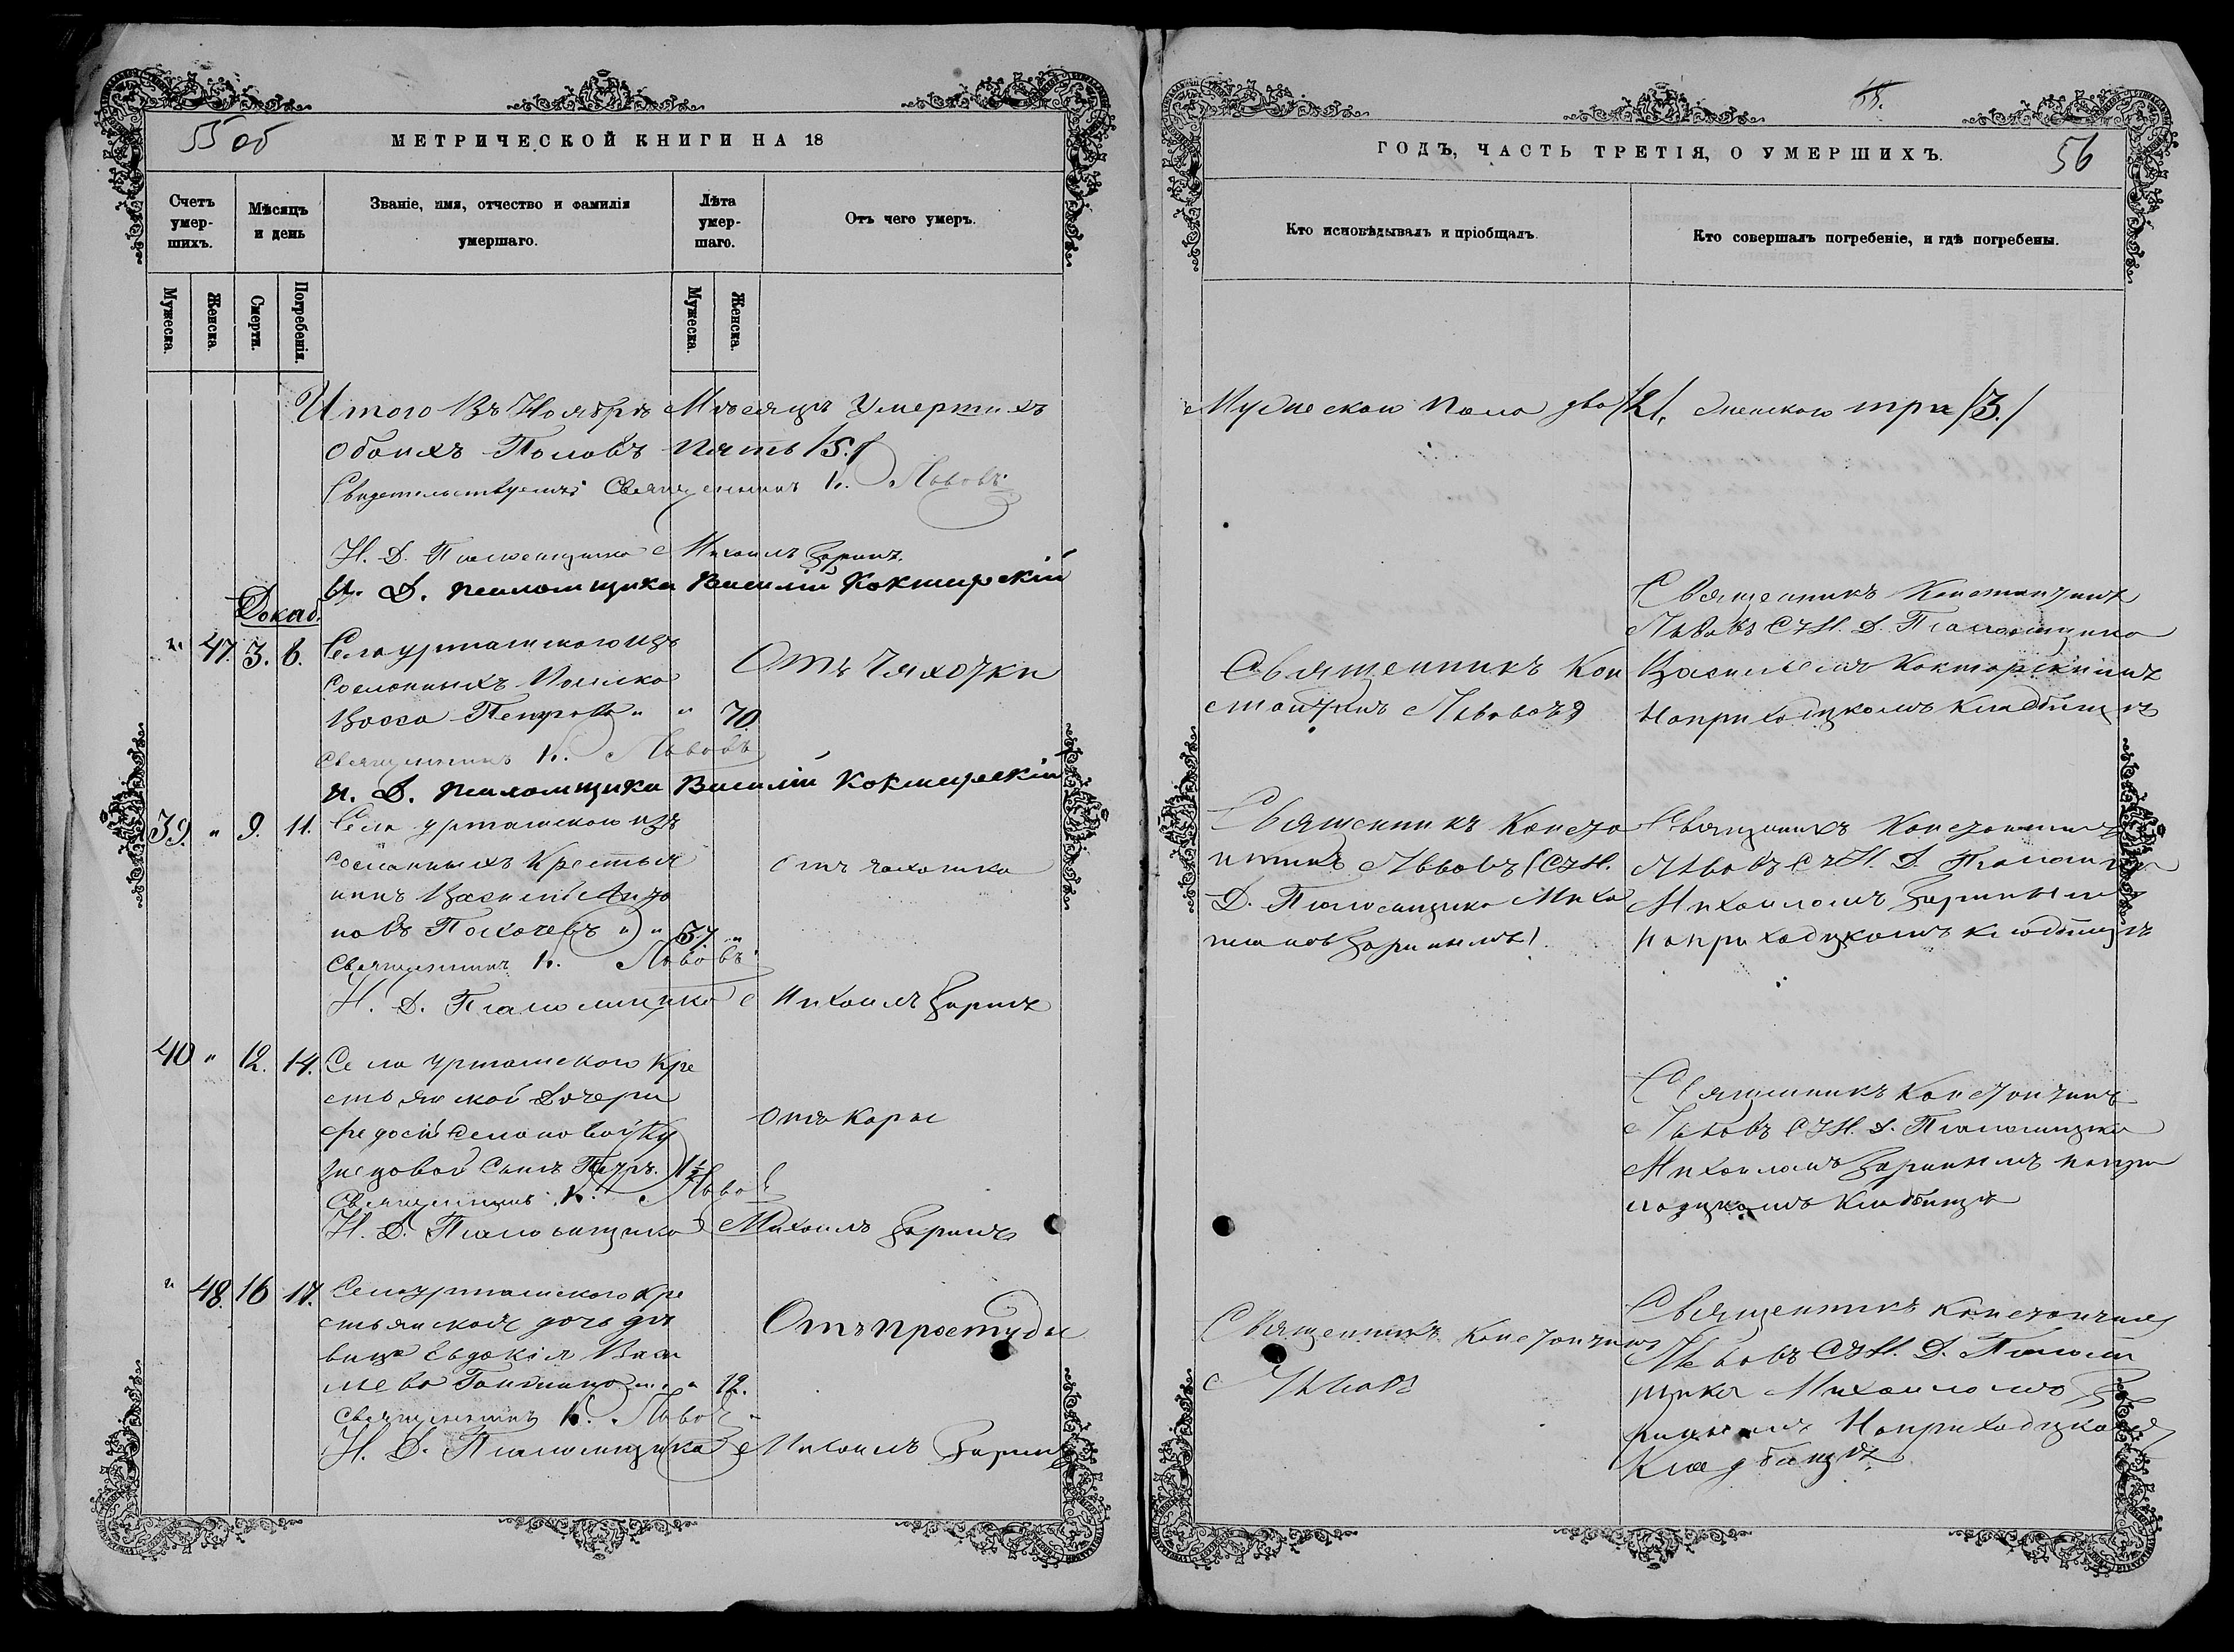 55 об
МЕТРИЧЕСКОЙ КНИГИ НА 18
Счетъ умер-шихъ.
Мѣсяцъ и день
Званіе, имя, отчество и фамилія умершаго.
Лѣта умер-шаго.
Отъ чего умеръ.
Мужеска.
Женска.
Смерти.
Погребенія.
Мужеска.
Женска.
Итого Въ Ноябрѣ Мѣсяцѣ Умершихъ
обоихъ Половъ Пять /5./
Свидетельствуемъ: Священникъ К. Львовъ
И. Д. Псаломщика Михаилъ Зоринъ.
И. Д. псаломщика Василій Кокшарскій
Декаб.
" 47. 3. 6. Села урташского изъ
сосланныхъ Поселка
Васса Петрова " " 70
Отъ Чахотки
Священникъ К. Львовъ
И. Д. псаломщика Василій Кокшарскій
39. " 9. 11. Села урташского изъ
сосланныхъ Крестья
нинъ Василій Анто
новъ " " 37. "
отъ чахотки
Священникъ К. Львовъ
И. Д. Псаломщика Михаилъ Зоринъ
40 " 12. 14. Села урташского Кре
стьянской Дочери
Федосіи Семеновой Ку
знецовой Сынъ Петръ. 1½
отъ Кори
Священникъ К. Львовъ
И. Д. Псаломщика Михаилъ Зоринъ
" 48. 16 17. Села урташского Кре
стьянская дочь дѣ
вица Евдокія Васи
льева " " 12.
Отъ простуды
Священникъ К. Львовъ
И. Д. Псаломщика Михаилъ Зоринъ
55.
ГОДЪ, ЧАСТЬ ТРЕТІЯ, О УМЕРШИХЪ.
56
Кто исповѣдывалъ и пріобщалъ.
Кто совершалъ погребеніе, и гдѣ погребены.
Мужескаго Пола два /2/, Женскаго три /3./
Священникъ Кон
стантинъ Львовъ
Священникъ Константинъ
Львовъ Съ И. Д. Псаломщика
Василіемъ Кокшарскимъ
На приходскомъ Кладбищѣ
Священникъ Конста
нтинъ Львовъ (Съ И.
Д. Псаломщика Миха
иломъ Зоринымъ)
Священникъ Константинъ
Львовъ Съ И. Д. Псаломщика
Михаиломъ Зоринымъ
на приходскомъ кладбищѣ
Священникъ Константинъ
Львовъ Съ И. Д. Псаломщика
Михаиломъ Зоринымъ на при
ходскомъ Кладбищѣ
Священникъ Константинъ
Львовъ
Священникъ Константинъ
Львовъ Съ И. Д. Псалом
щика Михаиломъ Зо
ринымъ На приходскомъ
Кладбищѣ